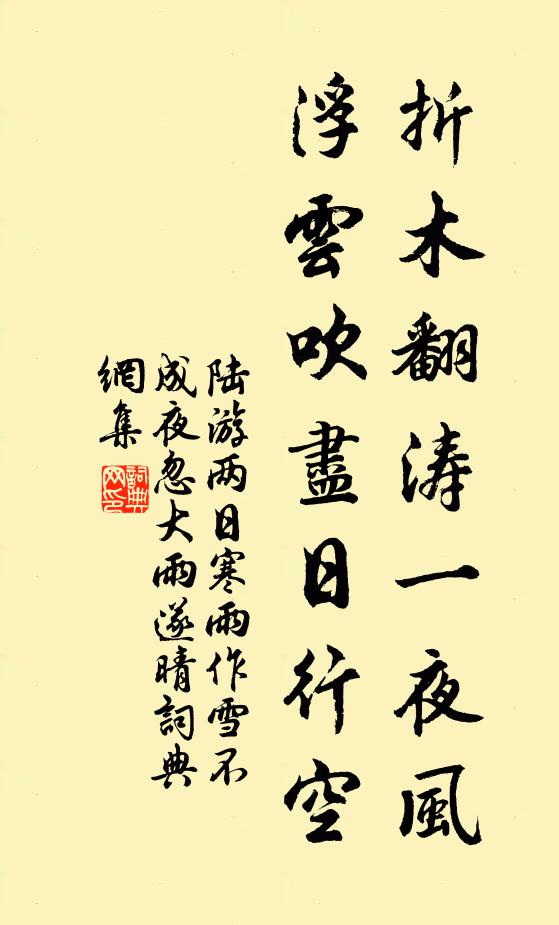 折木翻涛一夜風
浮雲吹盡日行空
陆游两日寒雨作雪不
成夜忽大雨遂晴詞典
網集
詞典
网印